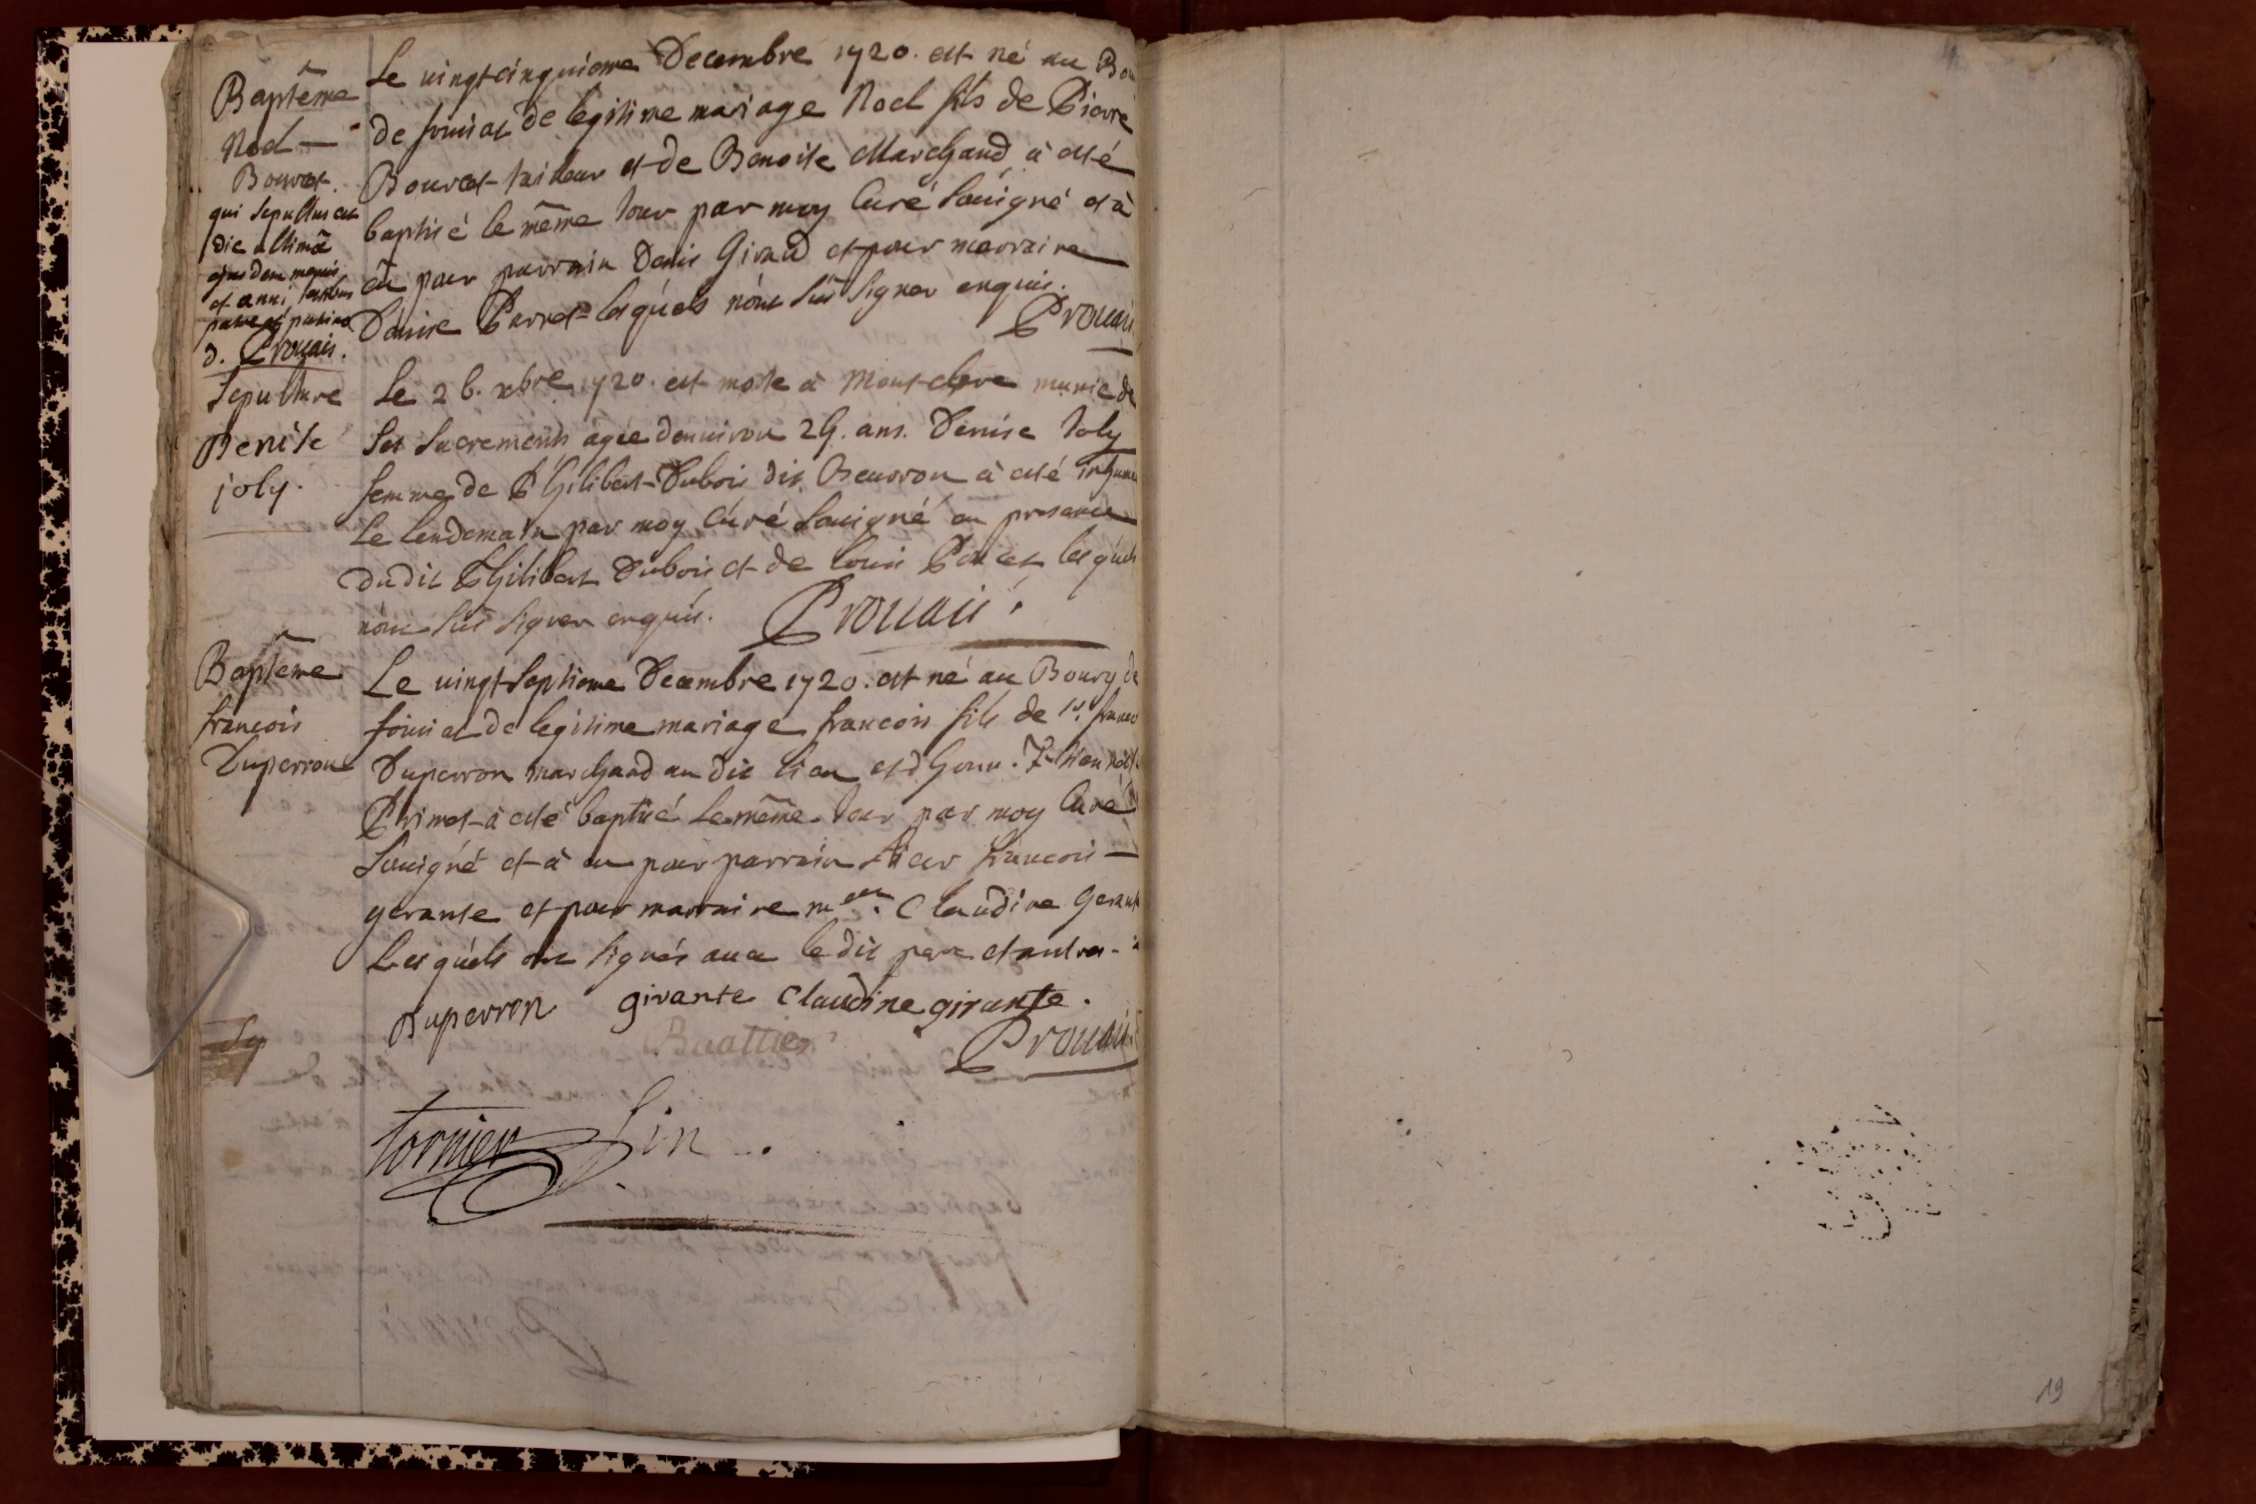 Baptême
Noel —
Bouret.
qui sepultus est
die ultimâ
ejusdem mensis
et anni testibus
patre et patrino
d. Prouais.
Le vingtcinquieme Decembre 1720. est né au Bou
de de legitime mariage Noel fils de Pierre
Bouret tailleur et de Benoite Marchand à esté
baptisé le même Jour par moy Curé Souigné et à
eû pour parrain Denis Giraud et pour marraine
Denise Perret lesquels nónt sçû signer enquis.
Prouais
Sepulture
Denise
joly.
Le 26. xbre 1720. est morte à munie de
ses sacrements agée denuiron 29. ans. Denise Joly
femme de Philibert Dubois dit à esté inhumée
le lendemain par moy Curé Souigné en presence
dudit Philibert Dubois et de Louis lesquels
nónt sçû signer enquis. Prouais.
Baptême
françois
Duperron
Le vingt septieme Decembre 1720. est né au Bourg de
de legitime mariage francois fils de sr. francois
Duperron marchand au dit lieu et d
à esté baptisé le même Jour par moy Curé
Souigné et à eu pour parrain sieur francois —
gerante et pour marraine Claudine Gerante
Lesquels ont signés auec le dit pere et autres.
Duperron girante Claudine girante.
Prouais
Tornier fin.
19